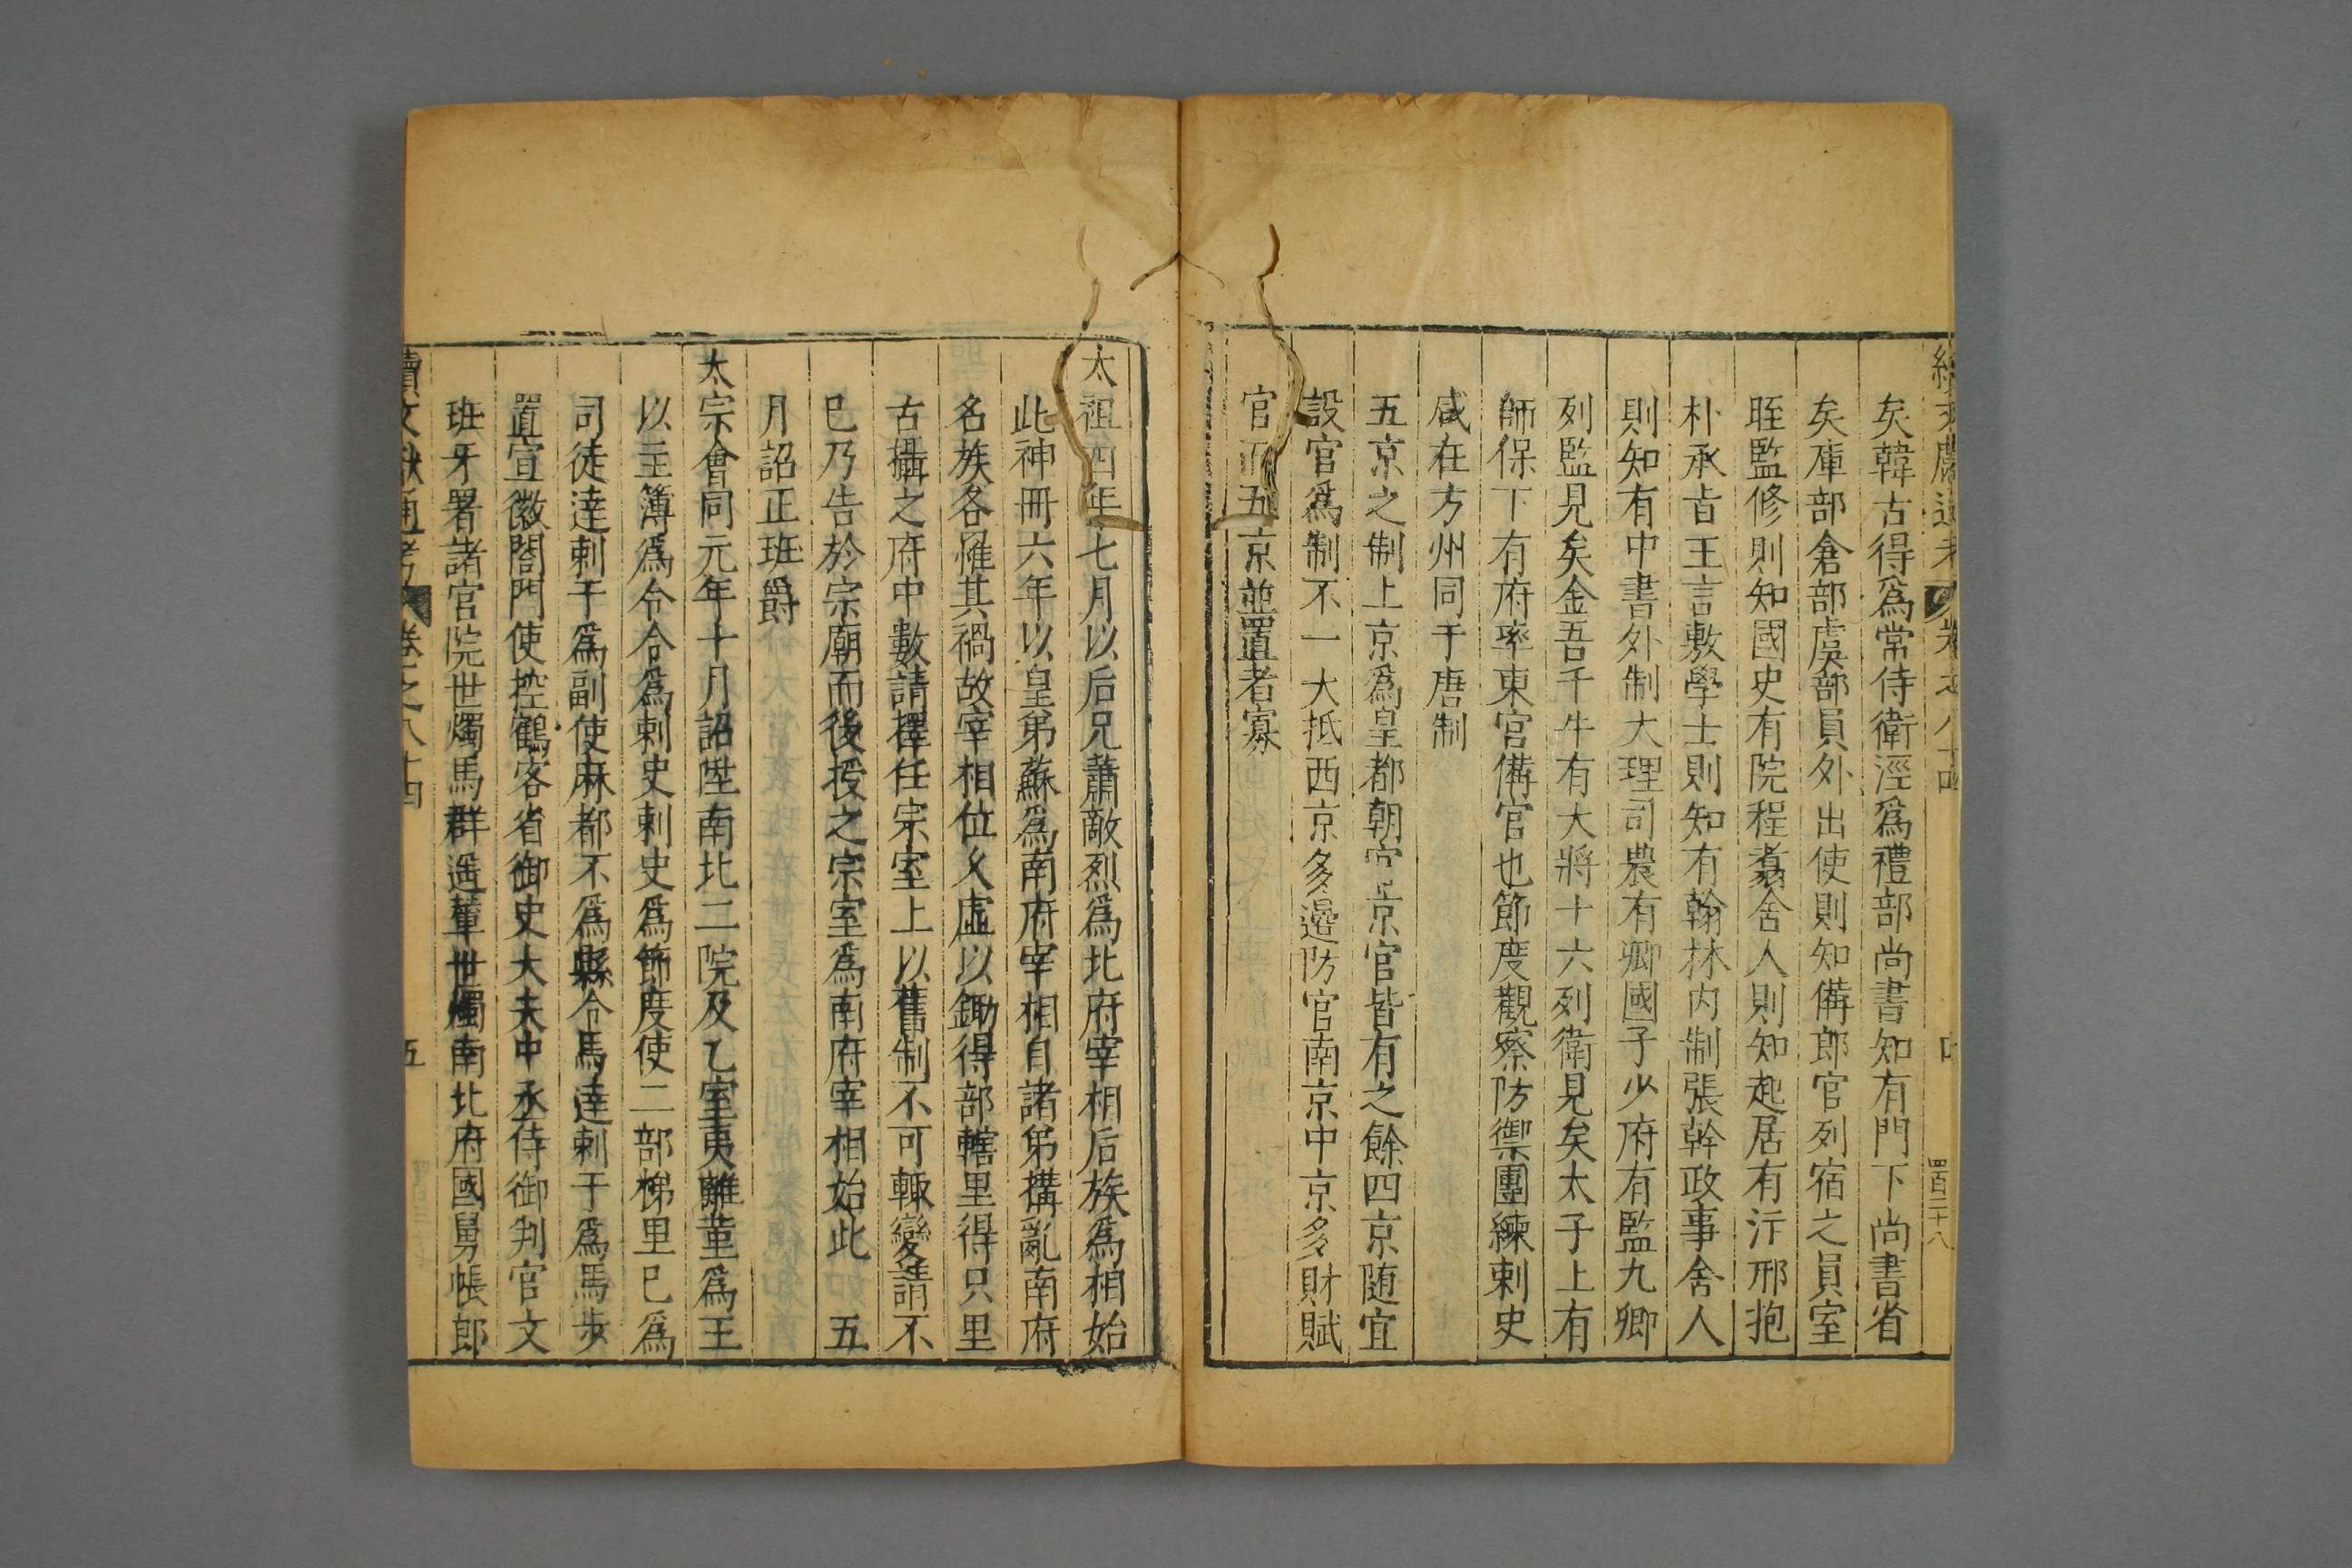 矣韓古得爲常侍衛涇爲禮部尚書知有門下尚書省
矣庫部倉部虞部員外出使則知備郎官列宿之員室
昉監修則知國史有院程翥舍人則知起居有注邢抱
朴承旨王言敷學士則知有翰林内制張幹政事舍人
則知有中書外制大理司農有卿國子少府有監九卿
列監見矣金吾千牛有大將十六列衛見矣太子上有
師保下有府率東宮備官也節度觀察防禦團練刺史
咸在方州同于唐制
五京之制上京爲皇都朝官京官皆有之餘四京随宜
設官爲制不一大抵西京多邊防官南京中京多財賦
官而五京並置者寡
太祖四年七月以后兄蕭敵烈爲北府宰相后族爲相始
此神冊六年以皇弟蘇爲南府宰相自諸弟搆亂南府
名族各罹其禍故宰相位久虚以鋤得部轄里得只里
古攝之府中數請擇任宗室上以舊制不可輙變請不
已乃告於宗廟而後授之宗室爲南府宰相始此 五
月詔正班爵
太宗會同元年十月詔陞南北二院及乙室夷離菫爲王
以主簿爲令令爲刺史刺史爲節度使二部梯里已爲
司徒達剌干爲副使麻都不爲縣令馬達剌干爲馬歩
置宣徽閤門使控鶴客省御史大夫中丞侍御判官文
班牙署諸官院世燭馬群遥輦世燭南北府國舅帳郎
續文獻通考 卷之八十四 五